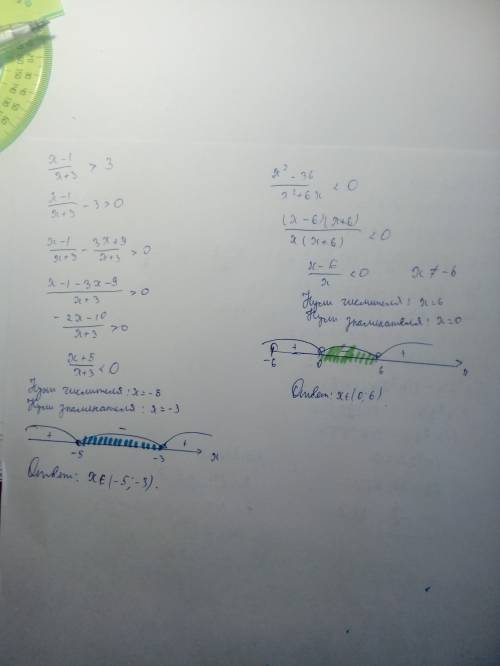 x-1/x+3 > 3
x-1/x+3 - 3 > 0
x-1/x+3 - 3x+9/x+3 > 0
x-1-3x-9/x+3 > 0
-2x-10/x+3 > 0
x+5/x+3 < 0
Нули числителя: x=-5
Нули знаменателя: x=-3
+ - +
-5 -3 x
Ответ: x∈(-5;-3).
x²-36/x²+6x < 0
(x-6)(x+6)/x(x+6) < 0
x-6/x < 0 x≠-6
Нули числителя: x=6
Нули знаменателя: x=0
+ - +
-6 0 6
Ответ: x∈(0;6)